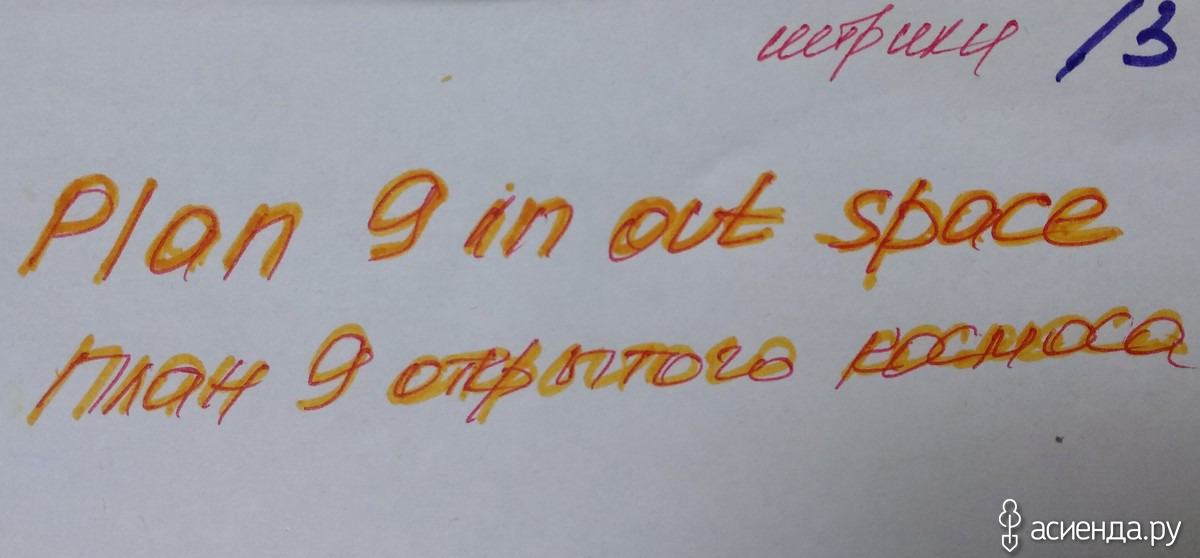 штрики 13
Plan 9 in out space
План 9 открытого космоса
асиенда.ру